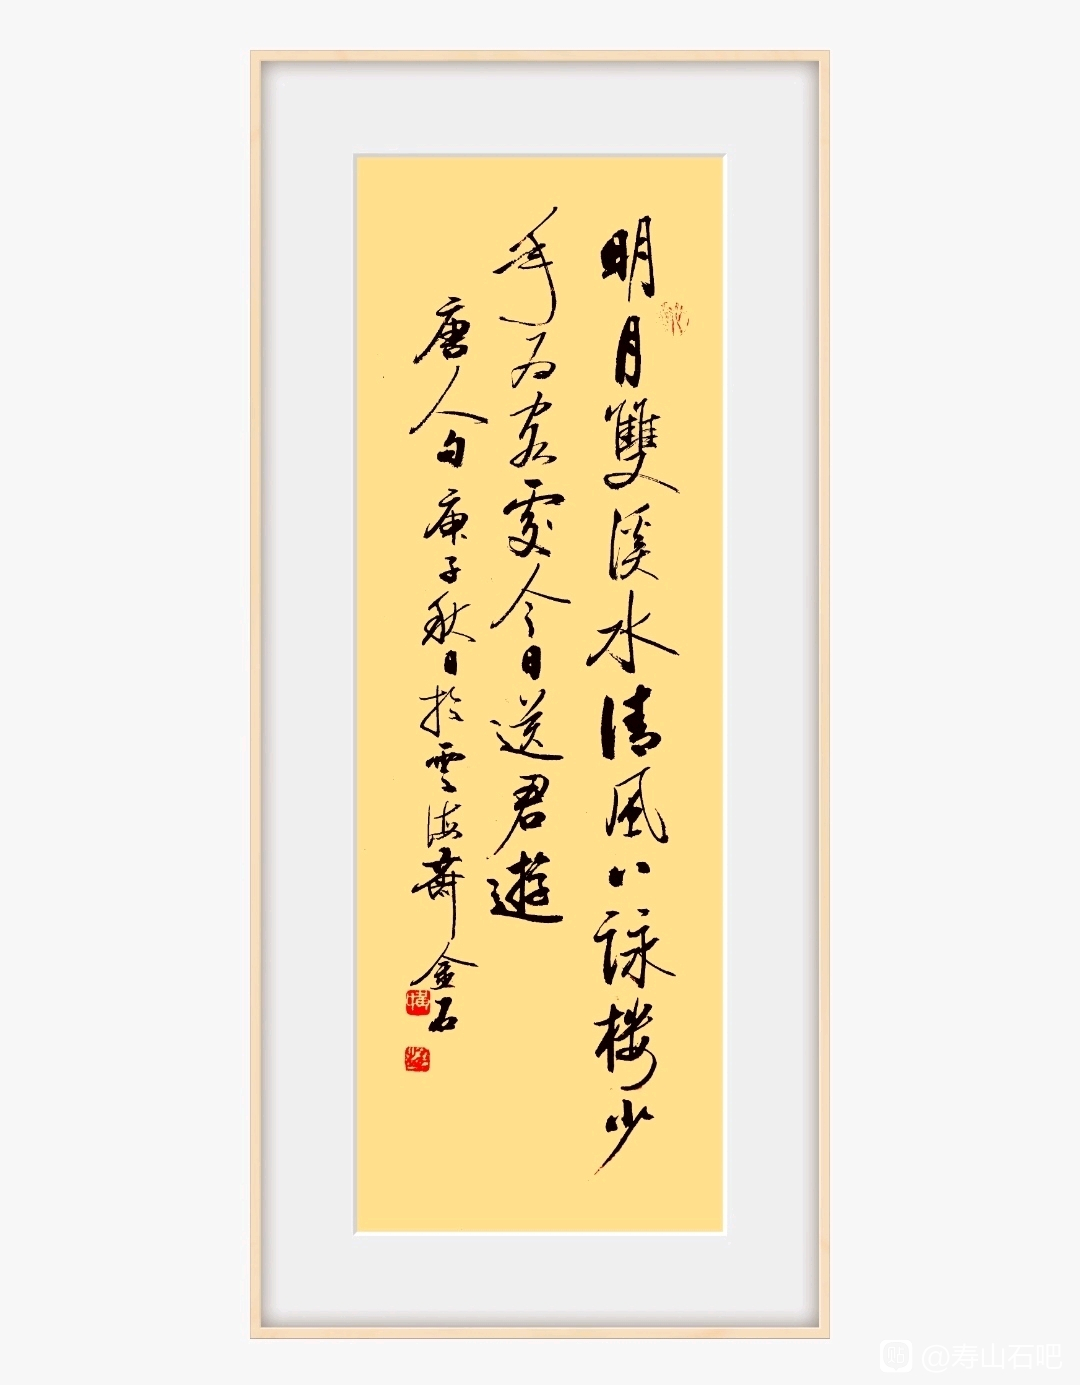 明月雙溪水清風八詠樓少
年為客處今日送君遊
唐人句庚子秋日於雲海齋金石
@寿山石吧